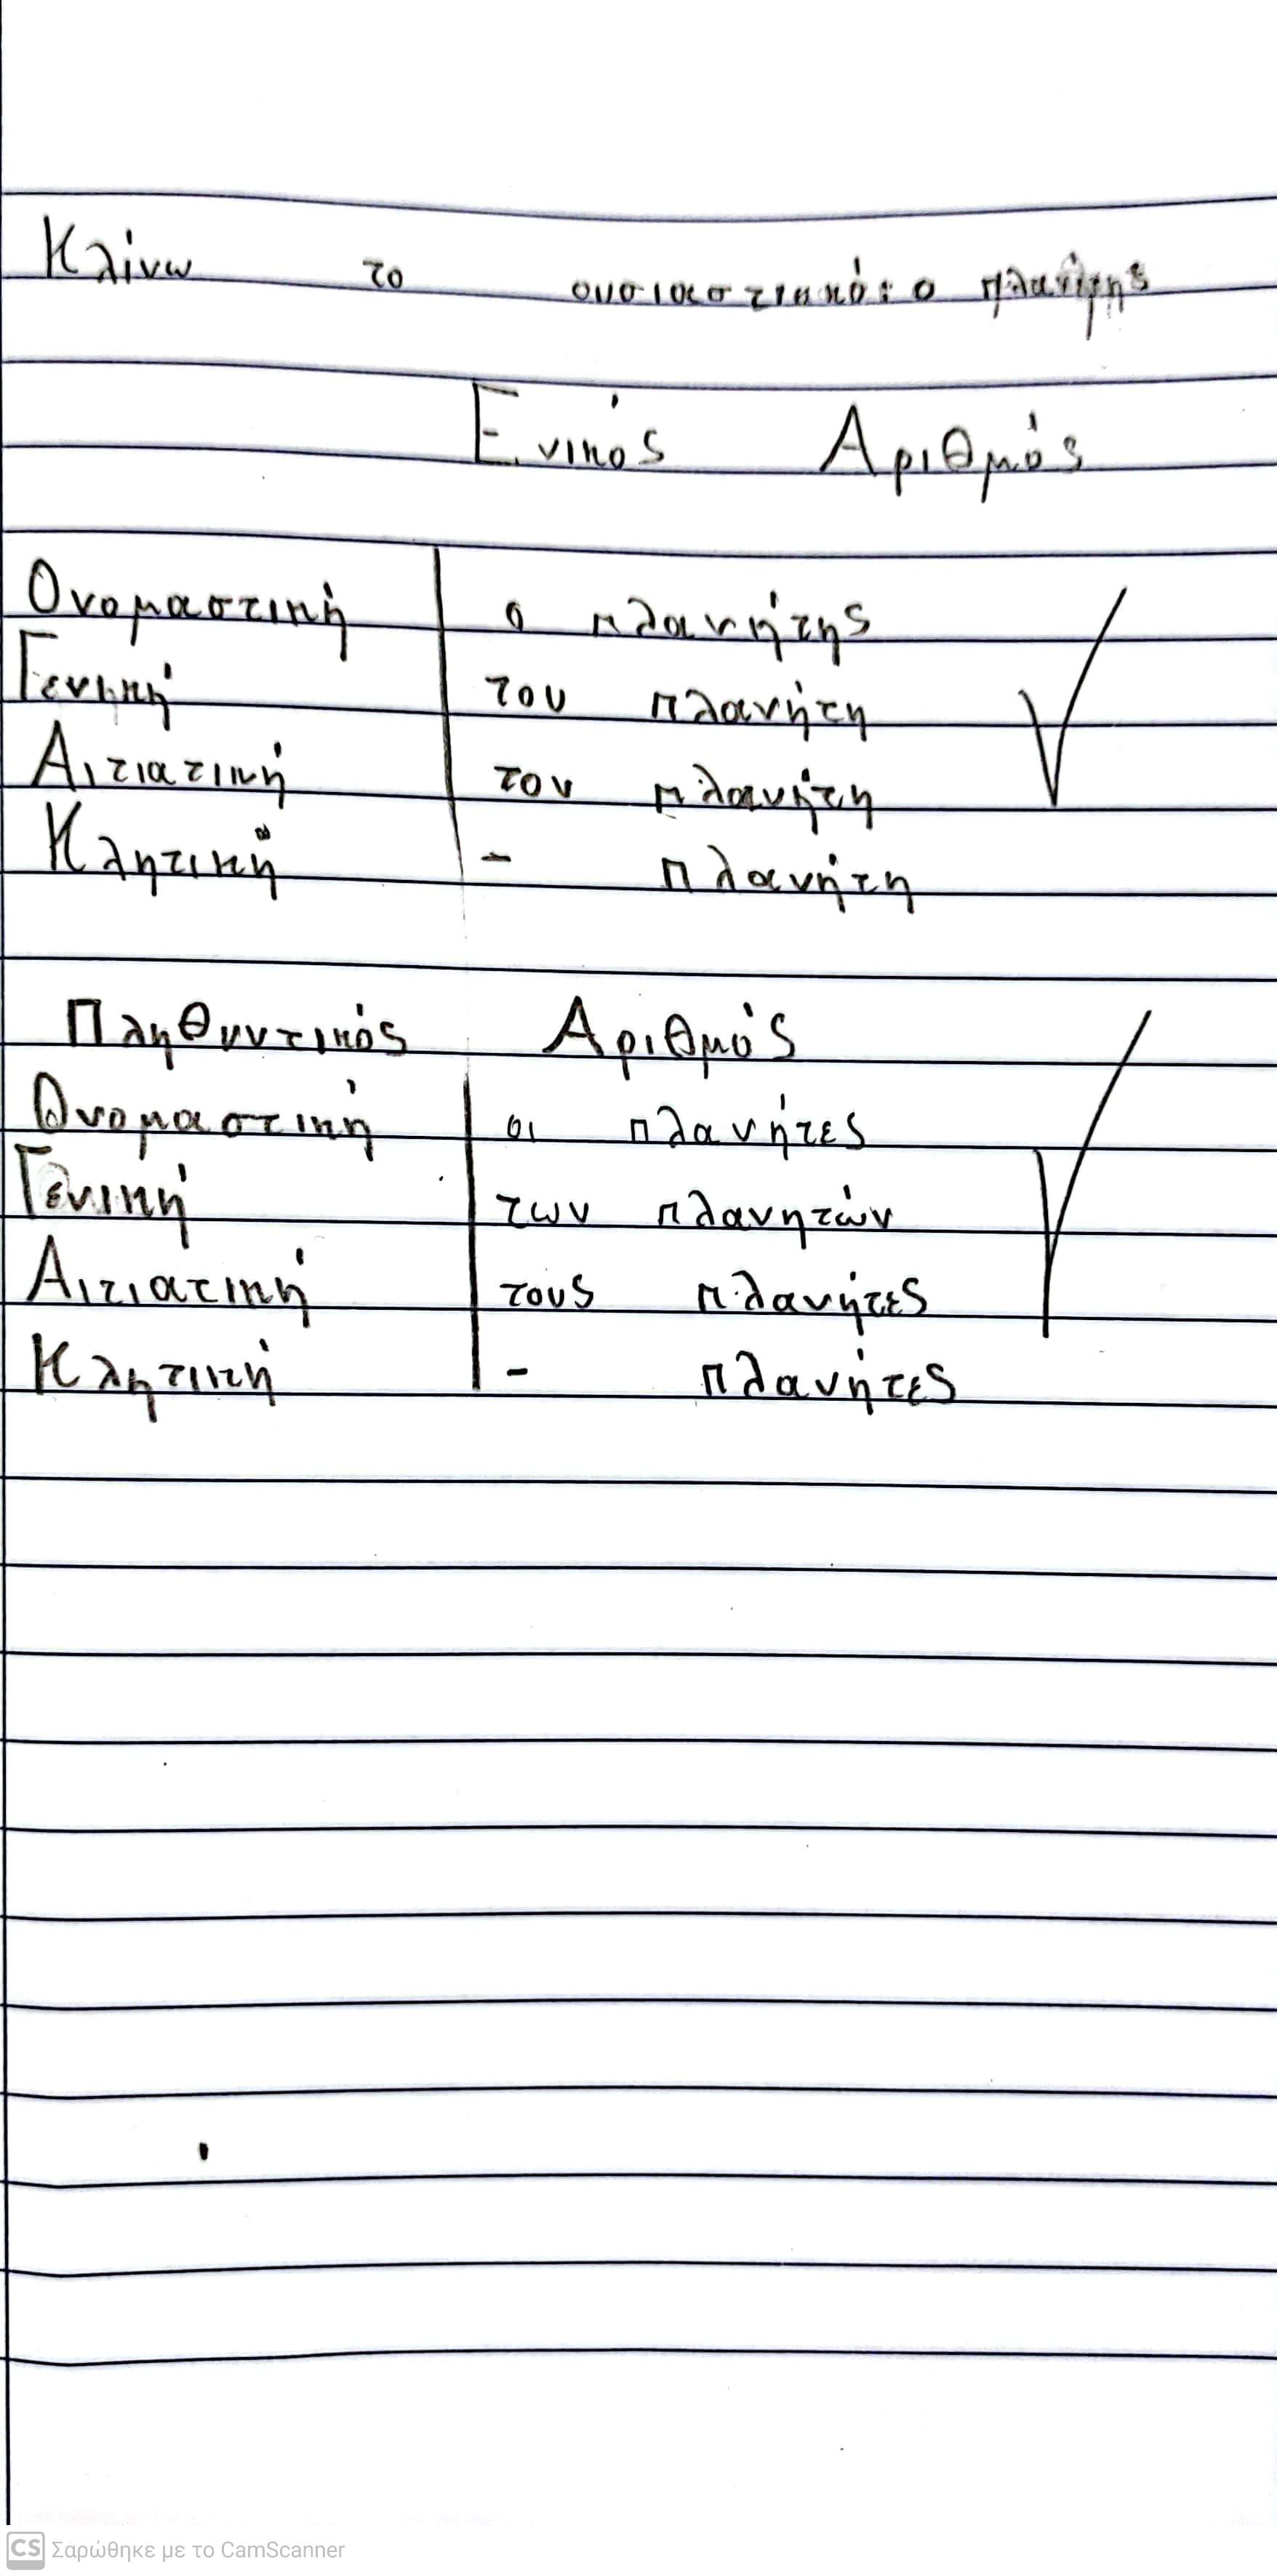 Κλίνω το ουσιαστικό: ο πλανήτης
Ενικός Αριθμός
Ονομαστική ο πλανήτης
Γενική του πλανήτη
Αιτιατική τον πλανήτη
Κλητική - πλανήτη
Πληθυντικός Αριθμός
Ονομαστική οι πλανήτες
Γενική των πλανητών
Αιτιατική τους πλανήτες
Κλητική - πλανήτες
CS Σαρώθηκε με το CamScanner